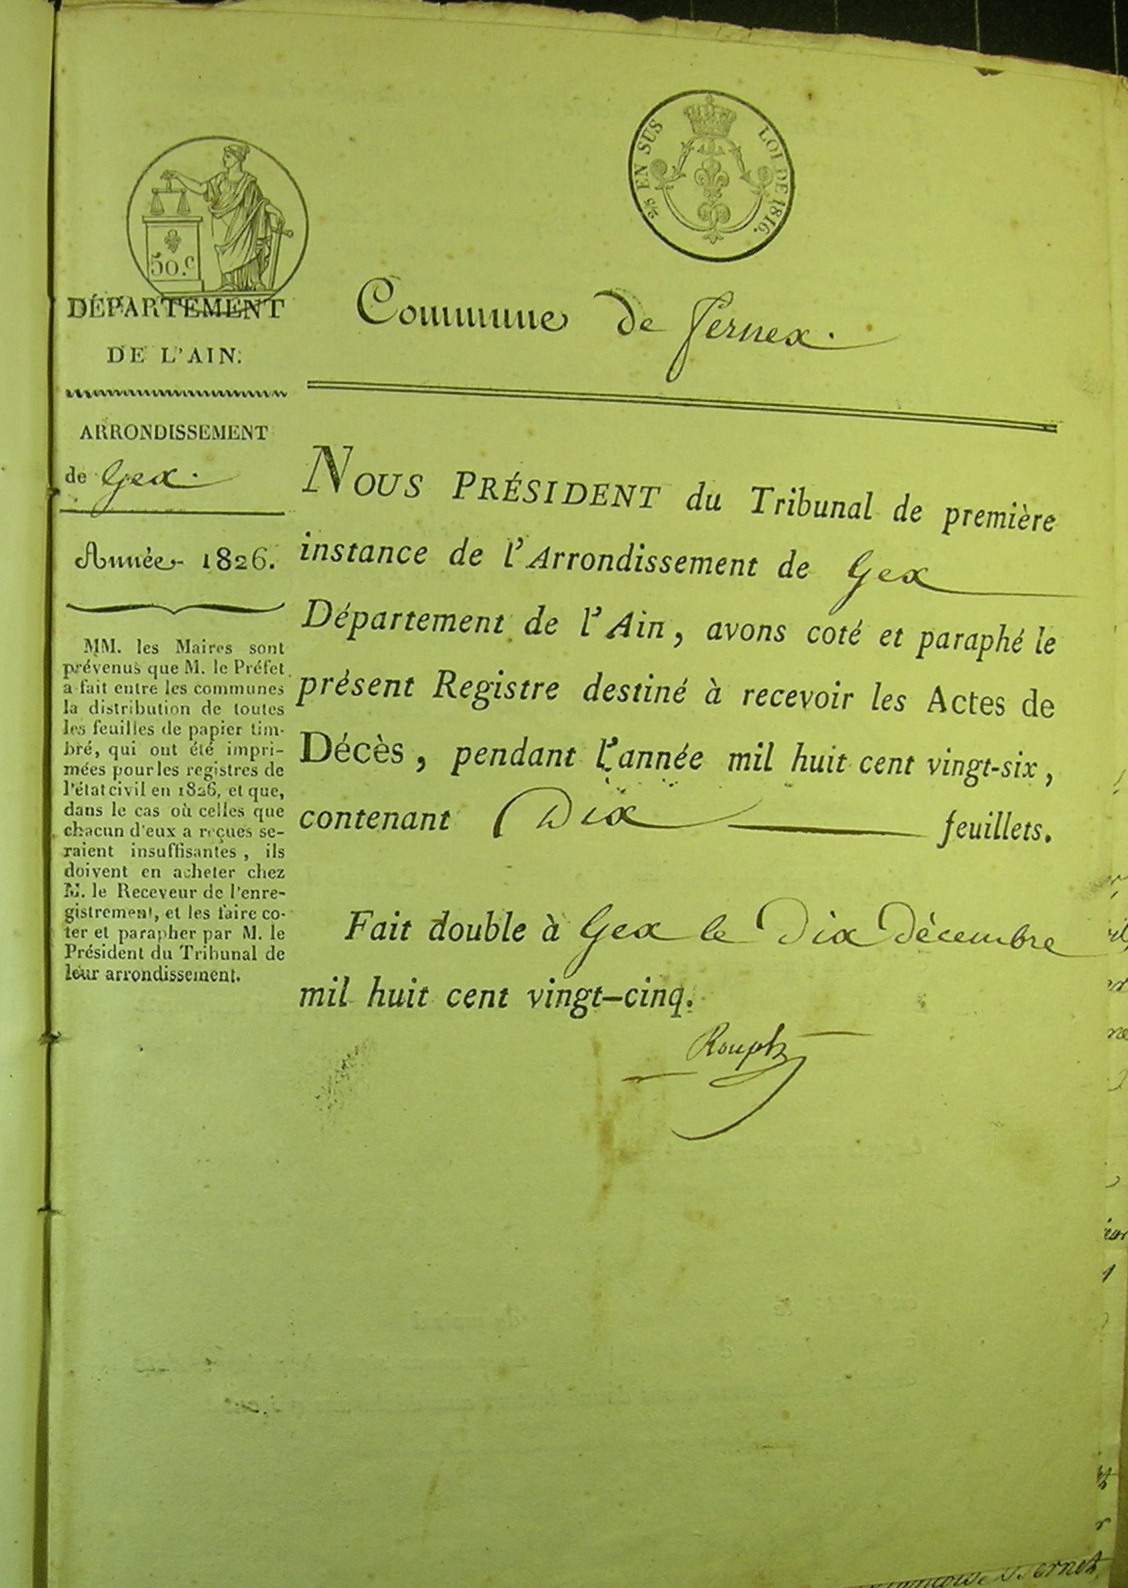 2/5 EN SUS LOI DE 1816.
50.c
DÉPARTEMENT
DE L'AIN.
ARRONDISSEMENT
de Gex.
Année 1826.
MM. les Maires sont
prévenus que M. le Préfet
a fait entre les communes
la distribution de toutes
les feuilles de papier tim-
bré, qui ont été impri-
mées pour les registres de
l'état civil en 1826, et que,
dans le cas où celles que
chacun d'eux a reçues se-
raient insuffisantes, ils
doivent en acheter chez
M. le Receveur de l'enre-
gistrement, et les faire co-
ter et parapher par M. le
Président du Tribunal de
leur arrondissement.
Commune de Fernex.
NOUS PRÉSIDENT du Tribunal de première
instance de l'Arrondissement de Gex
Département de l'Ain, avons coté et paraphé le
présent Registre destiné à recevoir les Actes de
Décès, pendant l'année mil huit cent vingt-six,
contenant Dix feuillets.
Fait double à Gex le Dix Décembre
mil huit cent vingt-cinq.